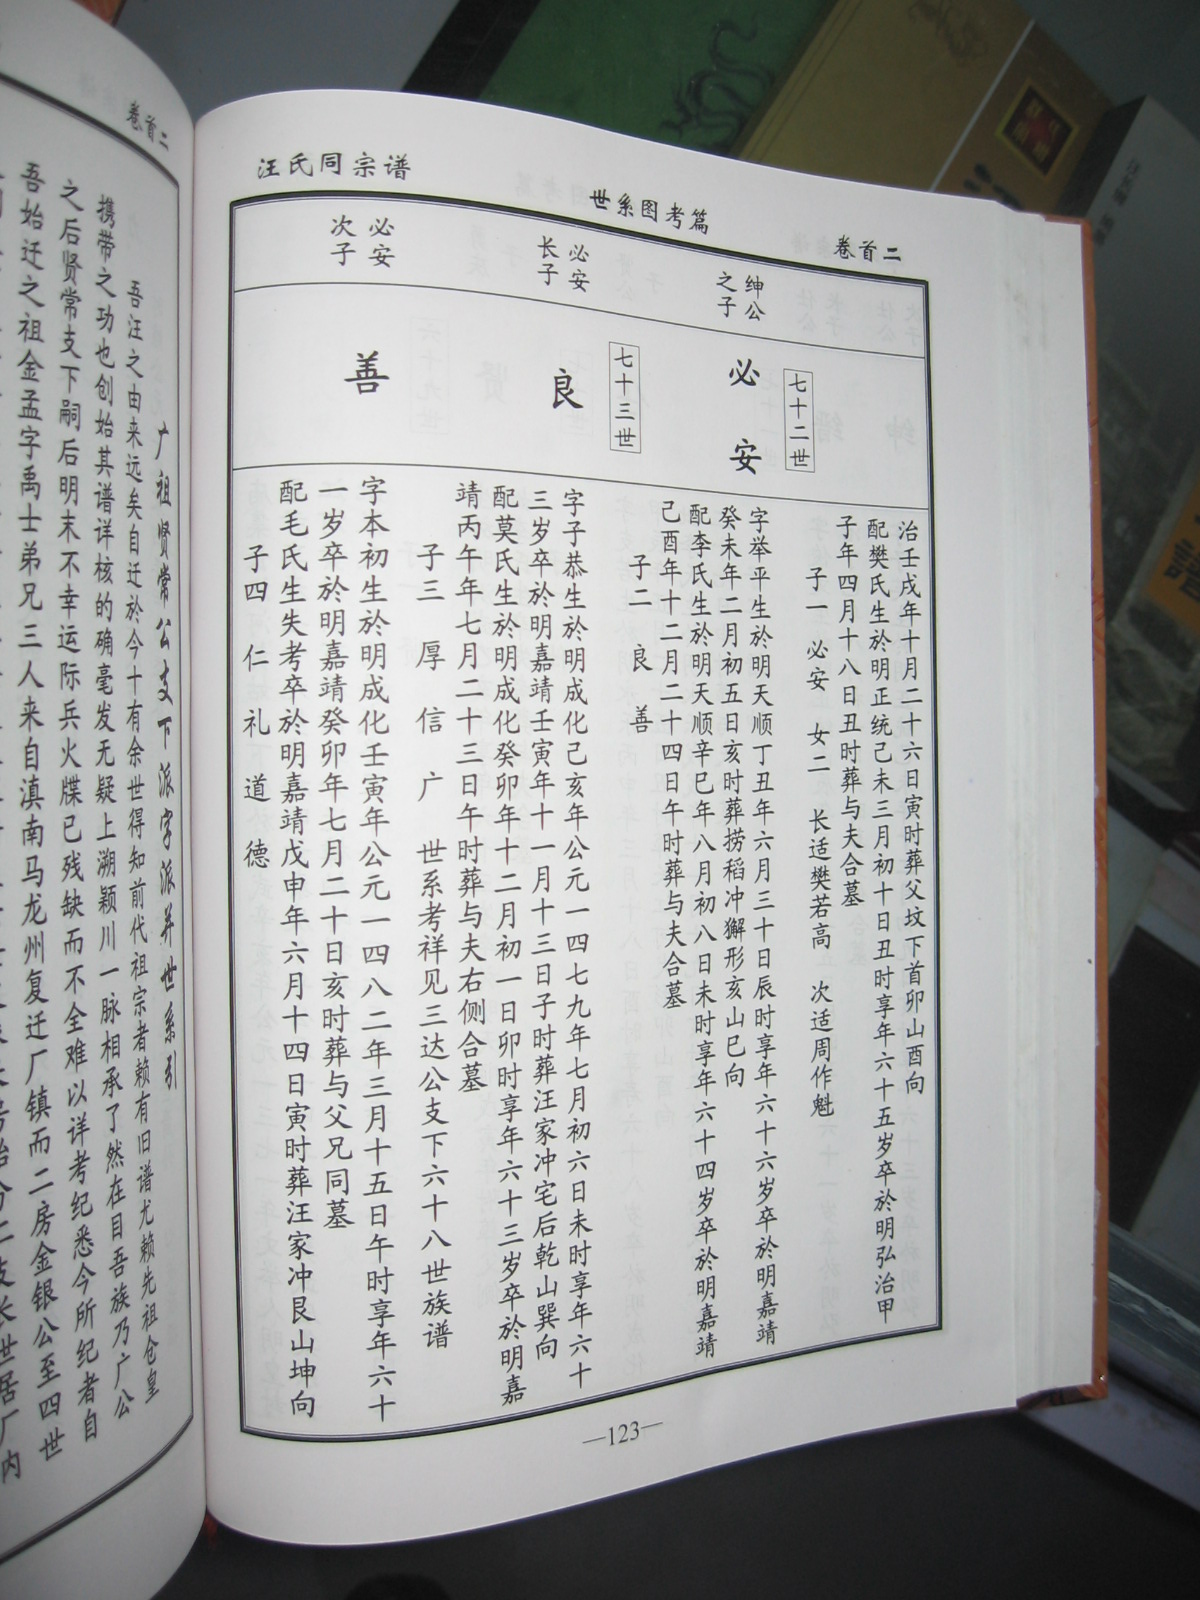 汪氏同宗谱
世系图考篇
卷首二
绅公
之子
必安
长子
必安
次子
七十二世
必安
七十三世
良
善
治壬戌年十月二十六日寅时葬父坟下首卯山酉向
配樊氏生於明正统己未三月初十日丑时享年六十五岁卒於明弘治甲
子年四月十八日丑时葬与夫合墓
子一 必安 女二 长适樊若高 次适周作魁
字举平生於明天顺丁丑年六月三十日辰时享年六十六岁卒於明嘉靖
癸未年二月初五日亥时葬捞稻冲獬形亥山巳向
配李氏生於明天顺辛巳年八月初八日未时享年六十四岁卒於明嘉靖
己酉年十二月二十四日午时葬与夫合墓
子二 良 善
字子恭生於明成化己亥年公元一四七九年七月初六日未时享年六十
三岁卒於明嘉靖壬寅年十一月十三日子时葬汪家冲宅后乾山巽向
配莫氏生於明成化癸卯年十二月初一日卯时享年六十三岁卒於明嘉
靖丙午年七月二十三日午时葬与夫右侧合墓
子三 厚 信 广 世系考祥见三达公支下六十八世族谱
字本初生於明成化壬寅年公元一四八二年三月十五日午时享年六十
一岁卒於明嘉靖癸卯年七月二十日亥时葬与父兄同墓
配毛氏生失考卒於明嘉靖戊申年六月十四日寅时葬汪家冲艮山坤向
子四 仁 礼 道 德
—123—
卷首二
广祖贤常公支下派字派并世系引
吾汪之由来远矣自迁於今十有余世得知前代祖宗者赖有旧谱尤赖先祖仓皇
携带之功也创始其谱详核的确毫发无疑上溯颖川一脉相承了然在目吾族乃广公
之后贤常支下嗣后明末不幸运际兵火牒已残缺而不全难以详考纪悉今所纪者自
吾始迁之祖金孟字禹士弟兄三人来自滇南马龙州复迁厂镇而二房金银公至四世